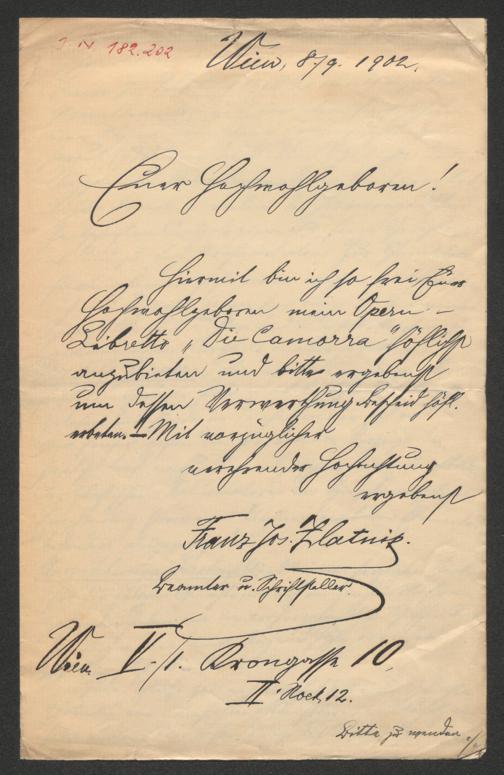 I. N 182.202
Wien, 8/9. 1902.
Euer Hochwohlgeboren!
Hiermit bin ich so frei Euer
Hochwohlgeboren mein Opern-
Libretto „Die Camorra" höflichst
anzubieten und bitte ergebenst
um dessen Verwerthung Bescheid höfl.
erbeten. – Mit vorzüglicher
verehrender Hochachtung
ergebenst
Franz Jos. Zlatnik.
Beamter u. Schriftsteller
Wien V./1. Krongasse 10,
II. Stock, 12.
Bitte zu wenden ./.